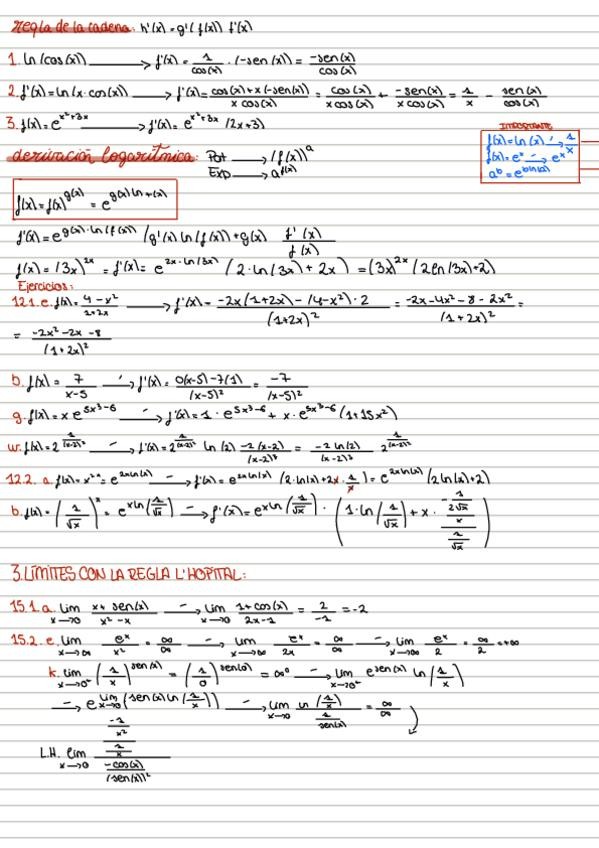 Regla de la cadena: h'(x) = g'(f(x)) f'(x)
1. ln(cos(x)) → f'(x) = 1/cos(x) · (-sen(x)) = -sen(x)/cos(x)
2. f'(x) = ln(x·cos(x)) → f'(x) = cos(x)+x(-sen(x))/x cos(x) = cos(x)/x cos(x) + -sen(x)/x cos(x) = 1/x - sen(x)/cos(x)
3. f(x) = e^(x²+3x) → f'(x) = e^(x²+3x) (2x+3)
IMPORTANTE
f(x) = ln(x) → 1/x
f(x) = e^x → e^x
a^b = e^(b ln(a))
derivación logarítmica: Pot → (f(x))^a
Exp → a^f(x)
f(x) = f(x)^g(x) = e^(g(x) ln f(x))
f'(x) = e^(g(x)·ln(f(x))) (g'(x) ln(f(x)) + g(x) f'(x)/f(x)
f(x) = (3x)^2x = f'(x) = e^(2x·ln(3x)) (2·ln(3x) + 2x) = (3x)^2x (2ln(3x)+2)
Ejercicios:
12.1. e. f(x) = 4-x²/1+2x → f'(x) = -2x(1+2x) - (4-x²)·2/(1+2x)² = -2x-4x²-8-2x²/(1+2x)² =
= -2x²-2x-8/(1+2x)²
b. f(x) = 7/x-5 → f'(x) = 0(x-5)-7(1)/(x-5)² = -7/(x-5)²
g. f(x) = x e^(5x³-6) → f'(x) = 1·e^(5x³-6) + x·e^(5x³-6) (1+15x²)
w. f(x) = 2^(1/(x-2)²) → f'(x) = 2^(1/(x-2)²) ln(2) -2(x-2)/(x-2)³ = -2 ln(2)/(x-2)³ 2^(1/(x-2)²)
12.2. a. f(x) = x^2x = e^(2x ln(x)) → f'(x) = e^(2x ln(x)) (2·ln(x)+2x·1/x) = e^(2x ln(x)) (2ln(x)+2)
b. f(x) = (1/√x)^x = e^(x ln(1/√x)) → f'(x) = e^(x ln(1/√x)) · (1·ln(1/√x) + x · -1/2√x/x/1/√x)
3. LÍMITES CON LA REGLA L'HOPITAL:
15.1. a. lim x→0 x+sen(x)/x²-x → lim x→0 1+cos(x)/2x-1 = 2/-1 = -2
15.2. e. lim x→∞ e^x/x² = ∞/∞ → lim x→∞ e^x/2x = ∞/∞ → lim x→∞ e^x/2 = ∞/2 = +∞
k. lim x→0⁺ (1/x)^sen(x) = (1/0)^sen(0) = ∞⁰ → lim x→0⁺ e^sen(x) ln(1/x)
→ e^lim x→0 (sen(x) ln(1/x)) → lim x→0 ln(1/x)/1/sen(x) = ∞/∞
L.H. lim x→0 -1/x²/1/x/-cos(x)/(sen(x))²